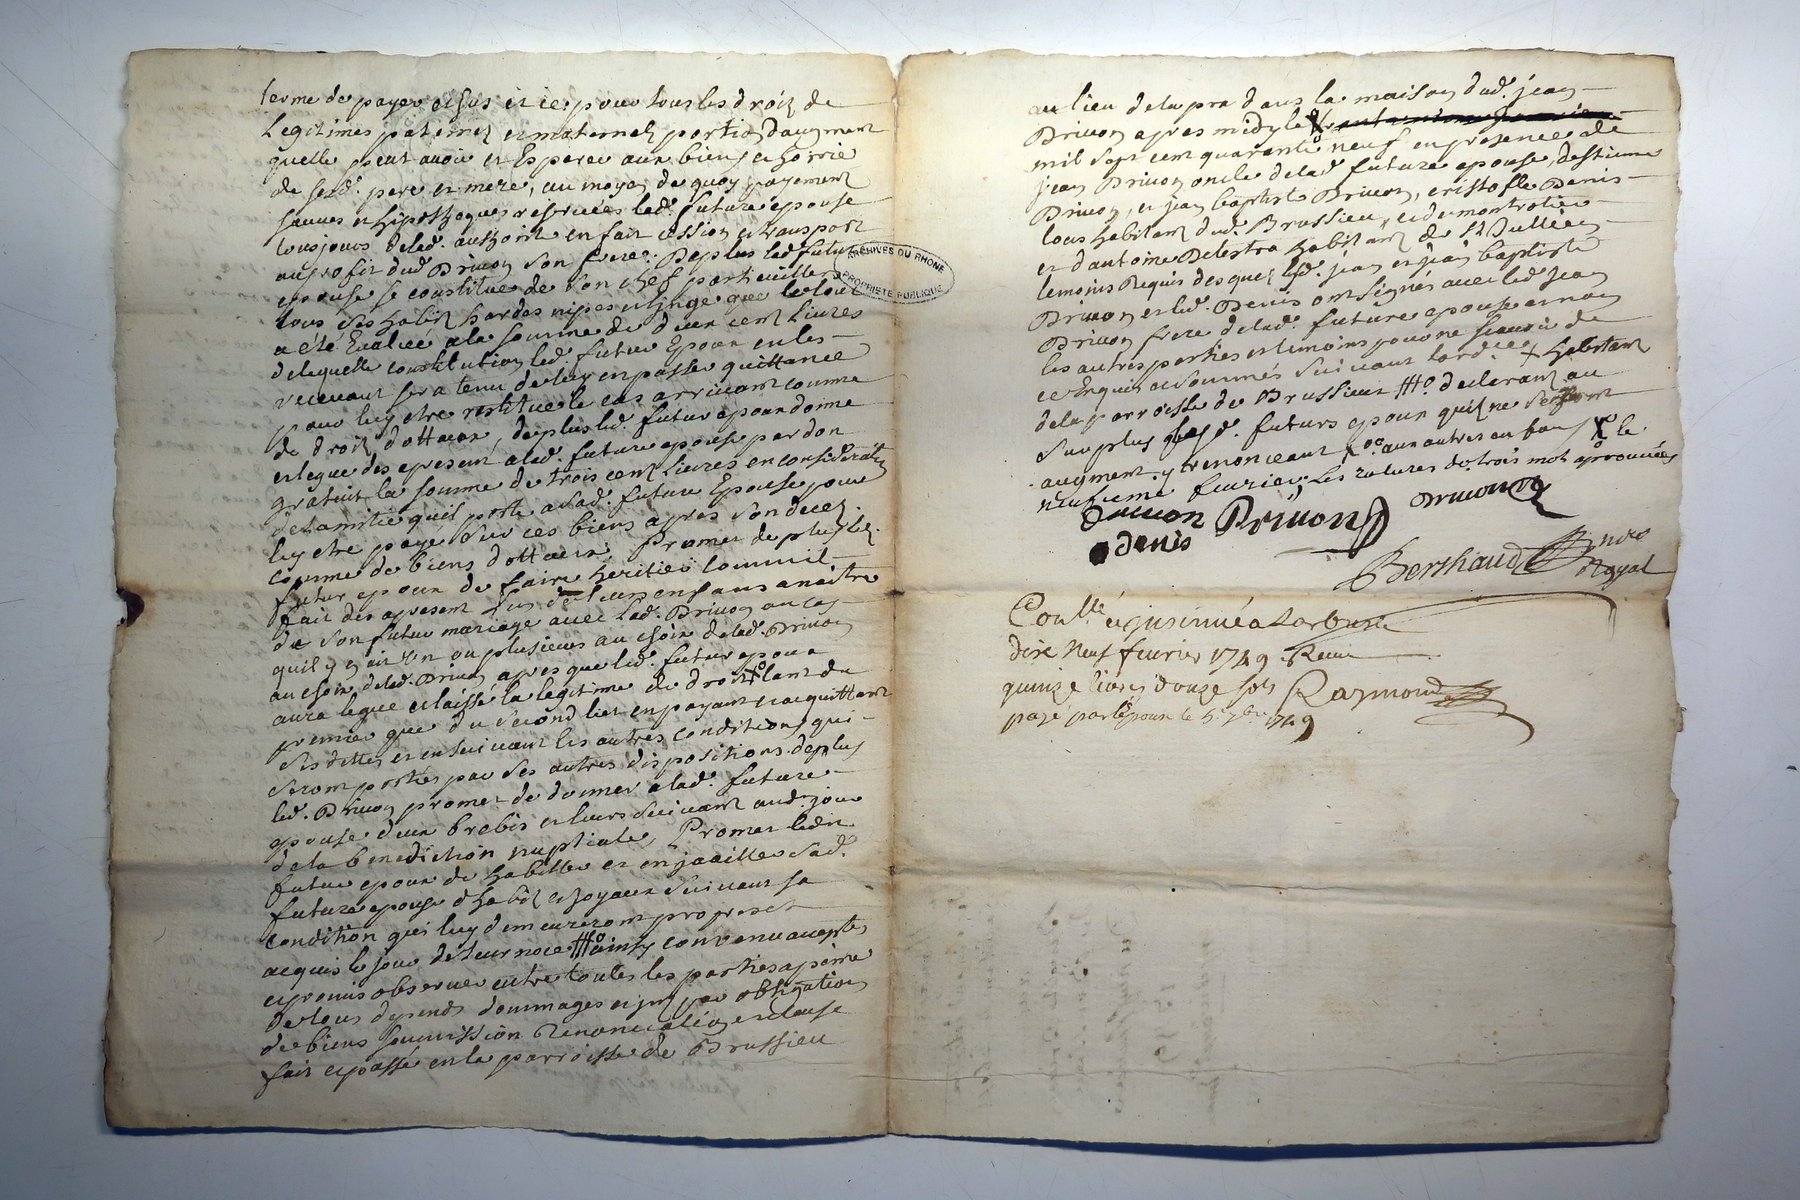 terme de payer et sus et ce pour tous les droiz de
Legitimes paternelz et maternelz portion daugment
quelle peut avoir et Esperer aux biens et hoirie
de sesd. pere et mere, au moyen de quoy payement
sauves et hipotheques reservées lad. future epouse
tousjours delad. authorité en fait cession et transport
au profit dud Drivon son frere. Deplus lad future
epouse se constitue de son chef particuillier
tous ses habitz hardes nipes et linge que le tout
a été Evaluée ala somme de deux cent Livres
delaquelle constitution led. futur Epoux en les
recevant sera tenu de luy en passer quittance
pour luy etre restituee le cas arrivant comme
de droit dottaux, deplus led. futur epoux donne
et legue des apresent alad. future epouse par don
gratuit la somme de trois cent Livres en consideration
de Lamitié quil porte a Lad. future Epouse pour
luy etre payé sur ces biens apres son decez
comme de biens dottaux. Promet de plus led.
futur epoux de faire heritier comme il
fait des apresent lun de leurs enfans a naitre
de son futur mariage avec lad. Drivon au cas
quil y en ait un ou plusieurs au choix delad. Drivon
au choix delad. Drivon apres que led. futur epoux
aura legué et laissé la legitime de droit tant du
premier que du second liet en payant et acquittant
ses dettes et en suivant les autres conditions qui
seront portées par ses autres dispositions. deplus
led. Drivon promet de donner alad. future
epouse deux brebis et leurs suivant aud. jour
dela benediction nuptiale, Promet ledit
futur epoux de habiller et enjoailler sad.
future epouse dhabitz et joyaux suivant sa
condition qui luy demeureront propres et
acquis le jour de leur noce # ainsy convenu accepté
et promis observer entre toutes les parties a peine
de tous depends dommages et jnt par obligation
de biens soumission Renonciation et clause
fait et passé en la parroisse de Brussieu
ARCHIVES DU RHONE
PROPRIETE PUBLIQUE
au lieu dela pra dans la maison dud. jean
Drivon apres midy le X
mil sept cent quarante neuf en presence de
jean Drivon oncle delad. future epouse, destienne
Drivon, et jean baptiste Drivon, cristofle Denis
tous habitant dud. Brussieu, et de montrotier
et dantoine Delestra habitant de St Jullien
temoins Requis desquelz lesd. jean et jean baptiste
Drivon et led. Denis ont signés avec led Jean
Drivon frere delad. future epouse et non
les autres parties et temoins pour ne scavoir de
ce Enquis et sommés suivant lord.ce + habitant
dela parroisse de Brussieu # declarant au
surplus lesd. futurs epoux quilz ne se font
augment y renonceant aux autres au bas X le
neufieme fevrier, Les ratures de trois mot aprouvées
Drivon Drivon Drivon
denis
Berthaud nore
Royal
Conlle et jnsinué a Larbresle
dixe Neuf fevrier 1749. Recu
quinze livres douze sols Raymond
payé par lepoux le 5. 7bre 1749